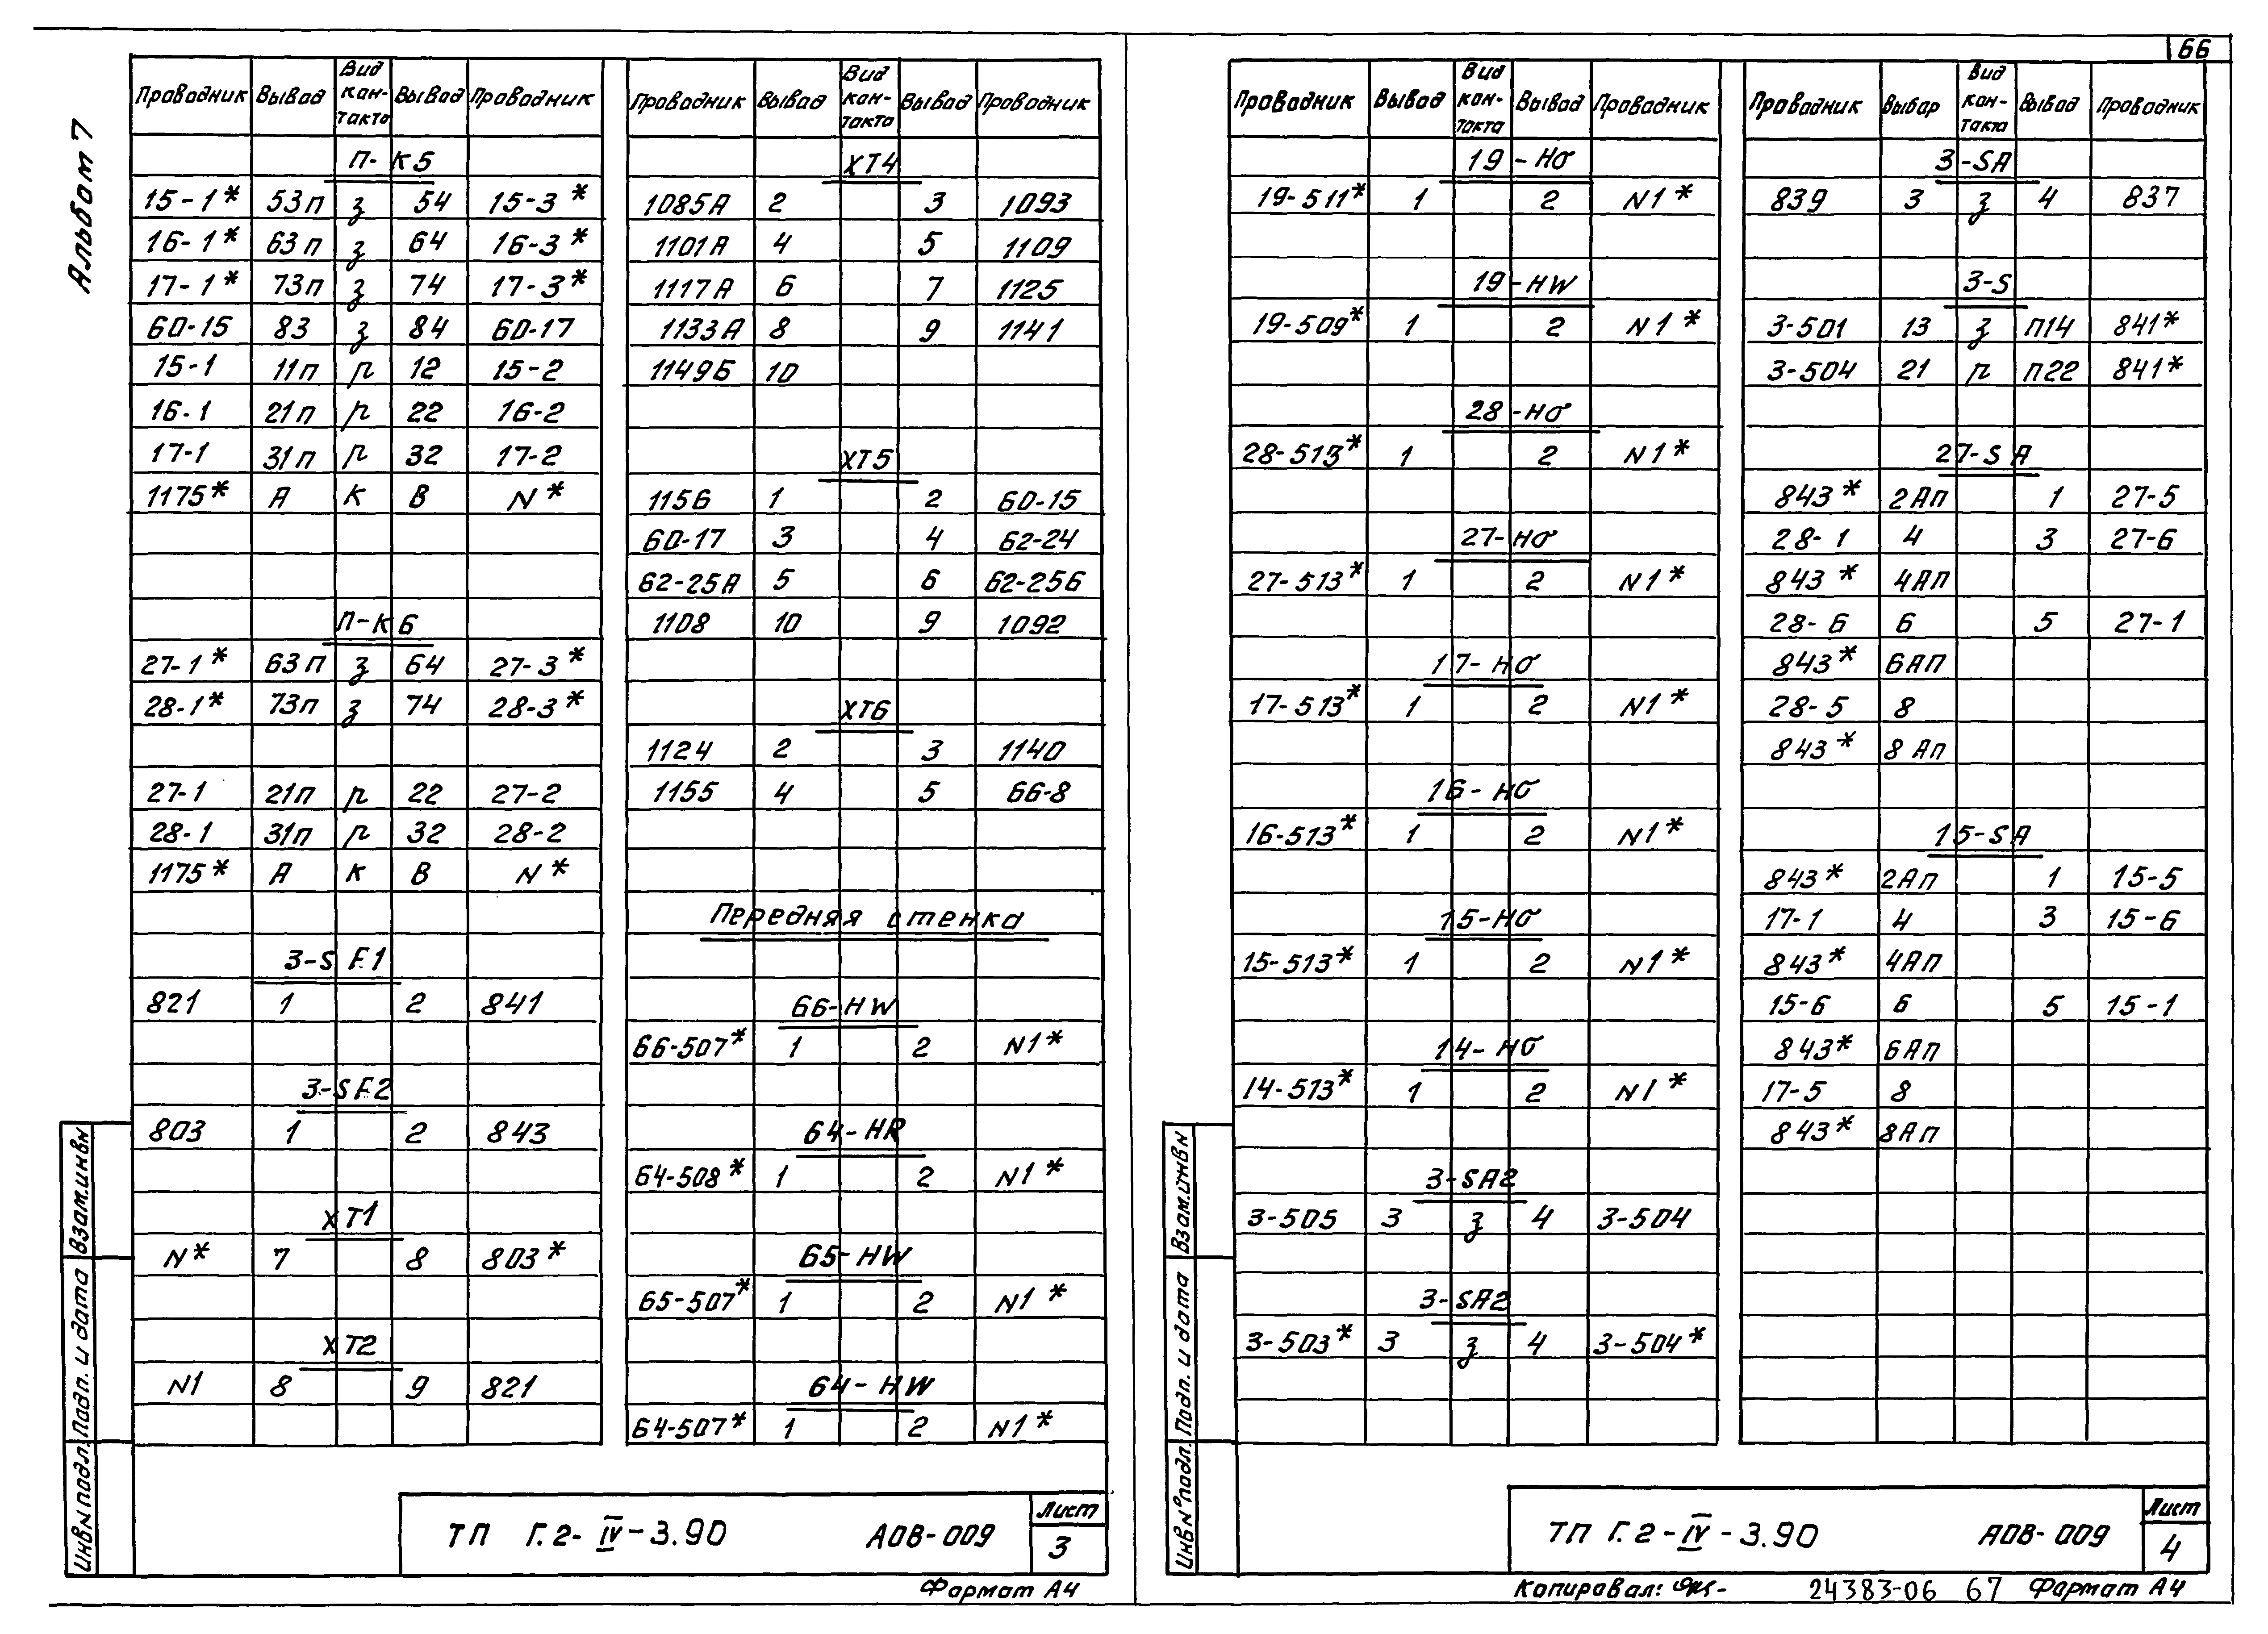 66
Альбом 7
Проводник Вывод Вид кон- такта Вывод Проводник
П-К5
15-1* 53п з 54 15-3*
16-1* 63п з 64 16-3*
17-1* 73п з 74 17-3*
60-15 83 з 84 60-17
15-1 11п р 12 15-2
16-1 21п р 22 16-2
17-1 31п р 32 17-2
1175* А К В N*
П-К6
27-1* 63п з 64 27-3*
28-1* 73п з 74 28-3*
27-1 21п р 22 27-2
28-1 31п р 32 28-2
1175* А К В N*
3-SF1
821 1 2 841
3-SF2
803 1 2 843
ХТ1
N* 7 8 803*
ХТ2
N1 8 9 821
Проводник Вывод Вид кон- такта Вывод Проводник
ХТ4
1085А 2 3 1093
1101А 4 5 1109
1117А 6 7 1125
1133А 8 9 1141
1149Б 10
ХТ5
1156 1 2 60-15
60-17 3 4 62-24
62-25А 5 6 62-25Б
1108 10 9 1092
ХТ6
1124 2 3 1140
1155 4 5 66-8
Передняя стенка
66-HW
66-507* 1 2 N1*
64-HR
64-508* 1 2 N1*
65-HW
65-507* 1 2 N1*
64-HW
64-507* 1 2 N1*
Взам.инвN
Подп. и дата
ИнвN подл.
ТП Г.2-IV-3.90 АОВ-009
Лист
3
Формат А4
Проводник Вывод Вид кон- такта Вывод Проводник
19-НО
19-511* 1 2 N1*
19-HW
19-509* 1 2 N1*
28-НО
28-513* 1 2 N1*
27-НО
27-513* 1 2 N1*
17-НО
17-513* 1 2 N1*
16-НО
16-513* 1 2 N1*
15-НО
15-513* 1 2 N1*
14-НО
14-513* 1 2 N1*
3-SA2
3-505 3 з 4 3-504
3-SA2
3-503* 3 з 4 3-504*
Проводник Вывор Вид кон- такта Вывод Проводник
3-SA
839 3 з 4 837
3-S
3-501 13 з П14 841*
3-504 21 р П22 841*
27-SA
843* 2Ап 1 27-5
28-1 4 3 27-6
843* 4АП
28-6 6 5 27-1
843* 6АП
28-5 8
843* 8Ап
15-SA
843* 2Ап 1 15-5
17-1 4 3 15-6
843* 4Ап
15-6 6 5 15-1
843* 6Ап
17-5 8
843* 8Ап
Взам.инвN
Подп. и дата
ИнвN°подл.
ТП Г.2-IV-3.90 АОВ-009
Лист
4
Копировал: 24383-06 67 Формат А4